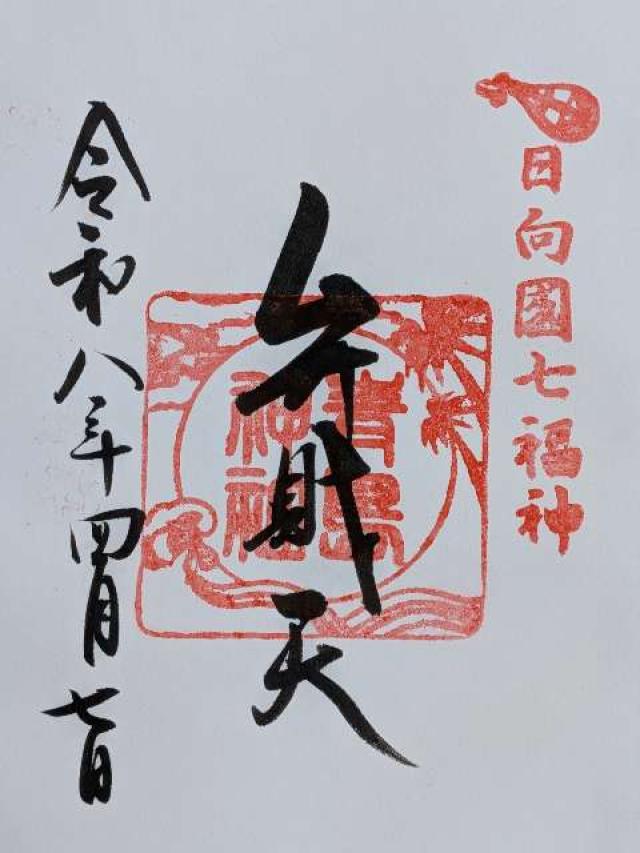 日向國七福神
弁財天
青島
神社
令和八年四月七日